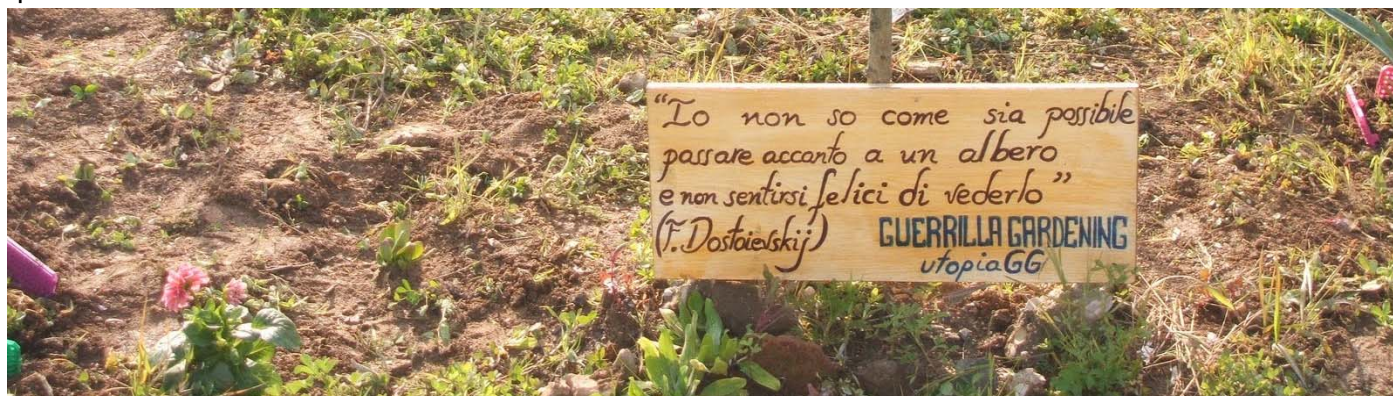 “Io non so come sia possibile
passare accanto a un albero
e non sentirsi felici di vederlo”
(F. Dostoievskij) GUERRILLA GARDENING
utopiaGG